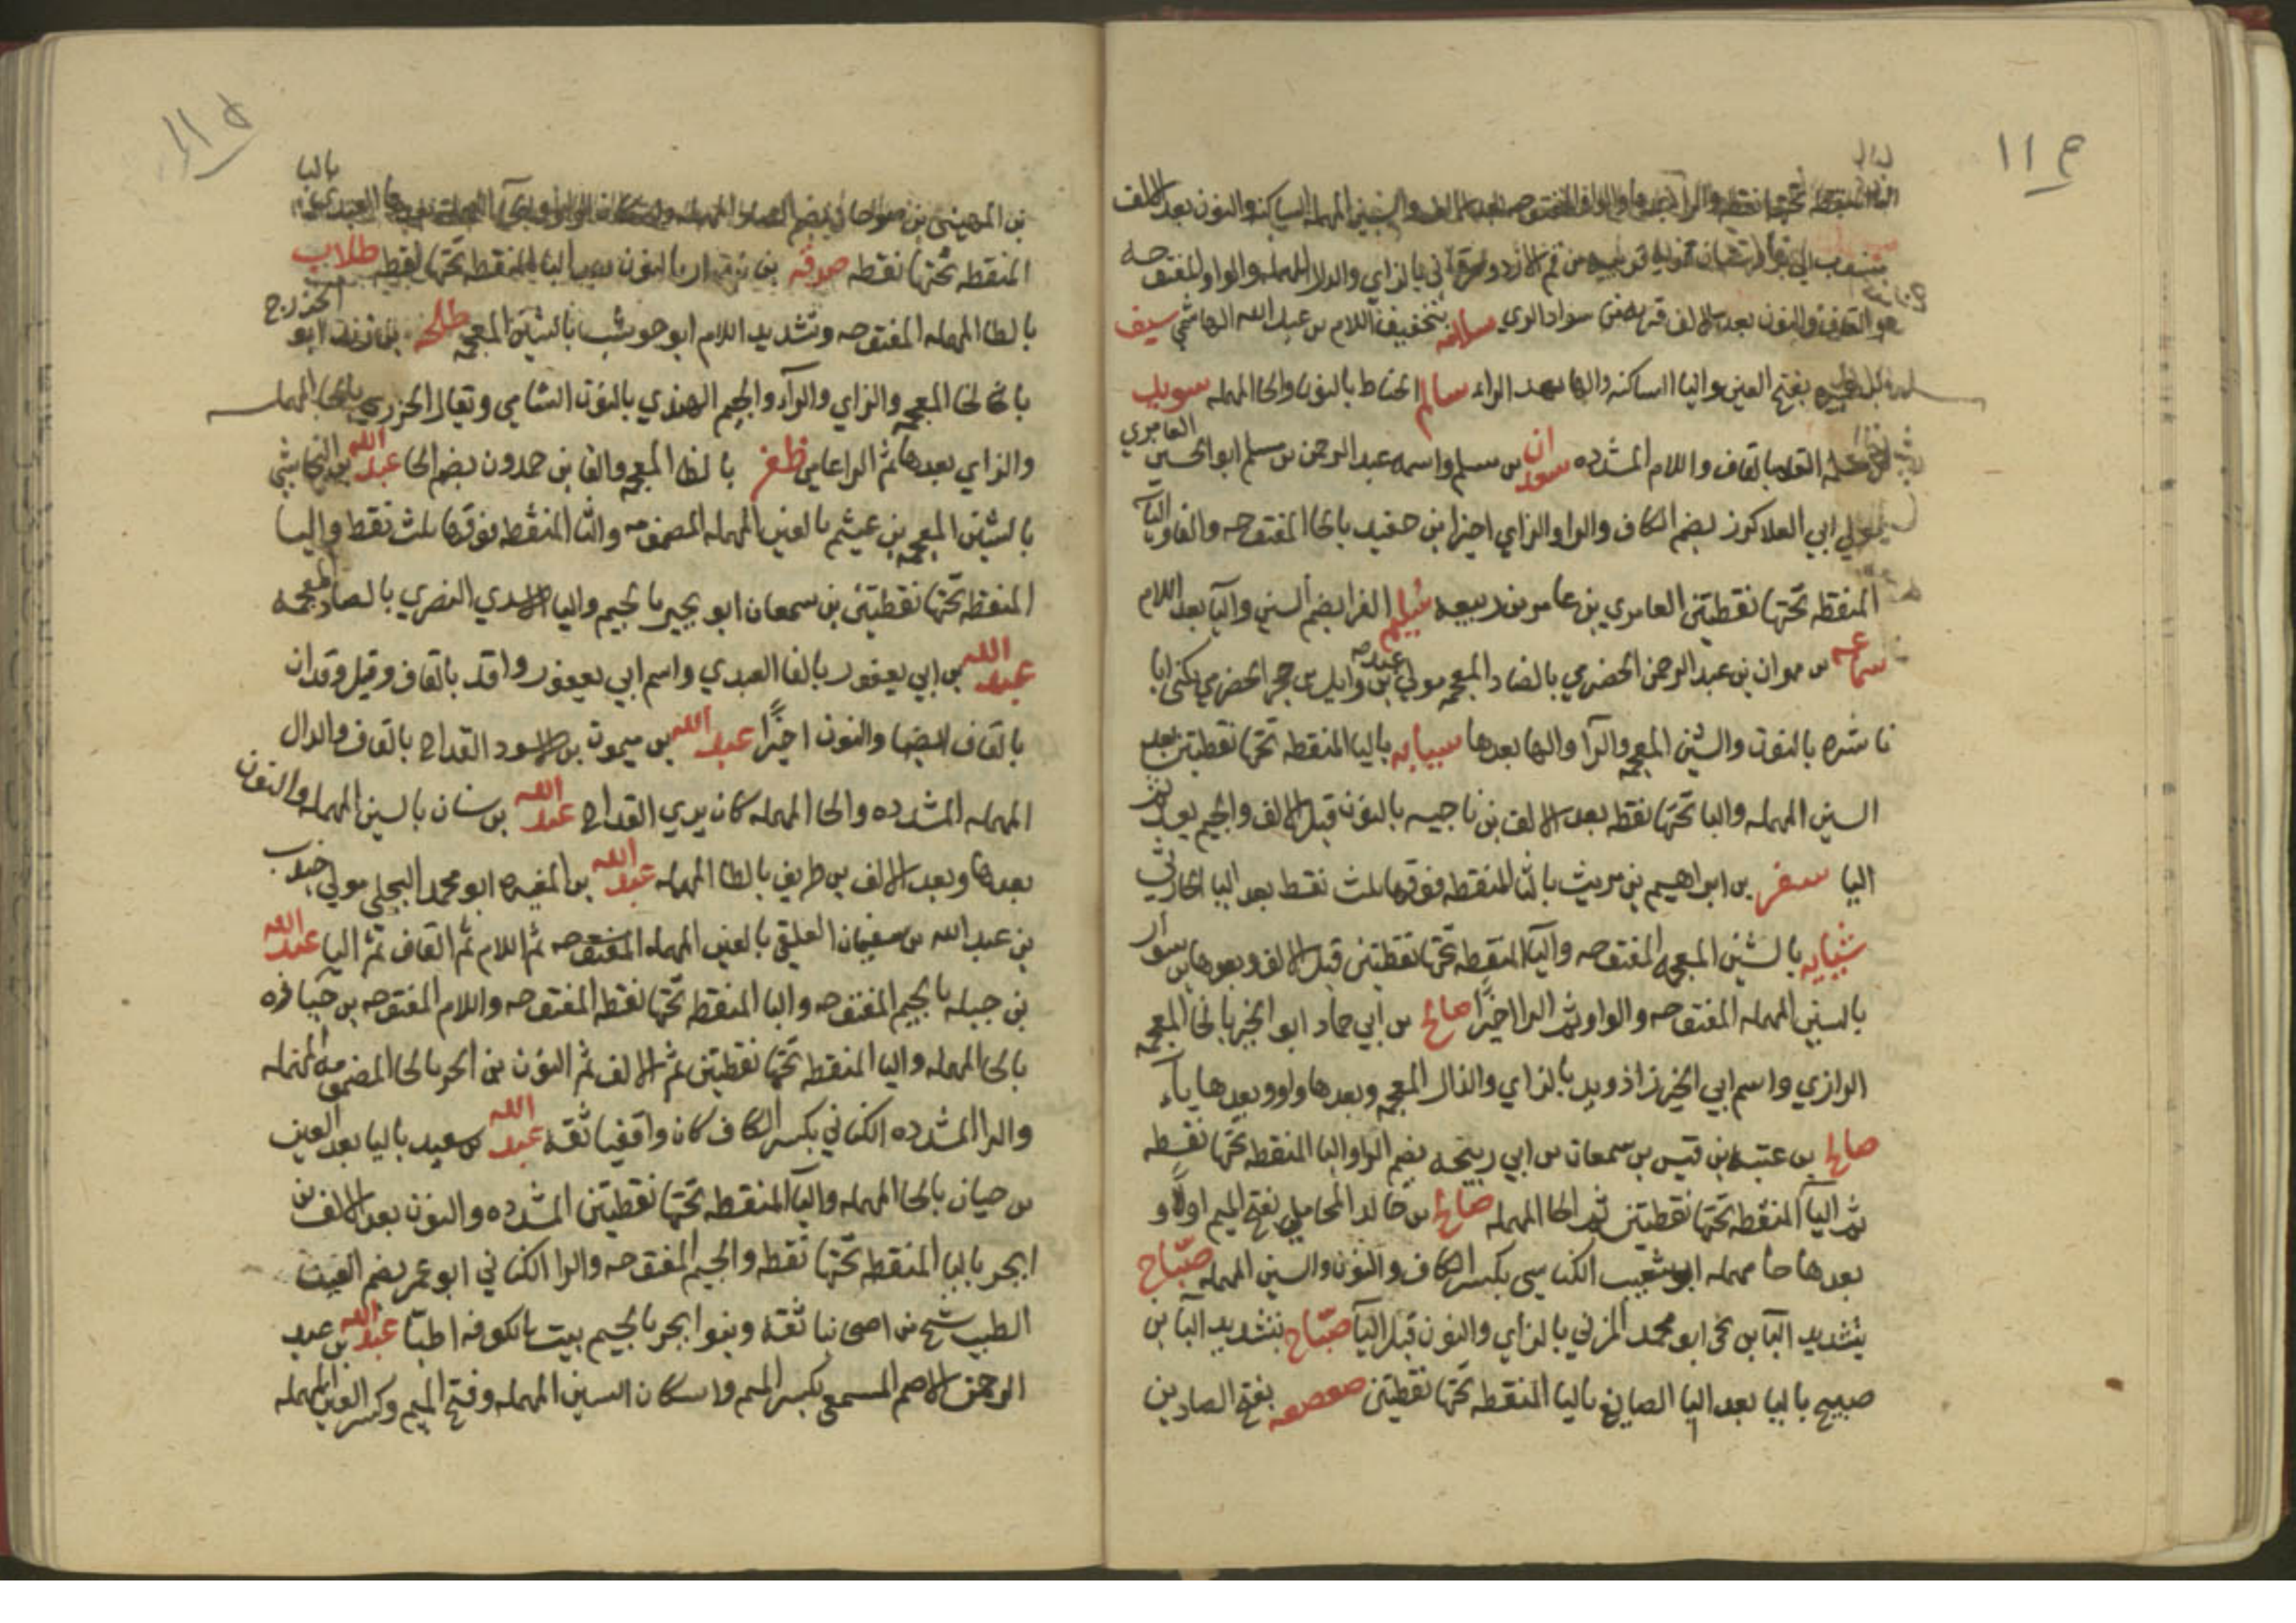 ١١٤
المنقطه تحتها نقطه والرا بعدها والواو المفتوحه بعد الالف والسين المهمله الساكنه والنون بعد الالف
بالزاي والدال المهمله والواو المفتوحه
والنون بعد الالف قريه من سواد الري سلامه بتخفيف اللام بن عبد الله الهاشمي سيف
بن عميره بفتح العين واليا الساكنه والها بعد الراء سالم الحناط بالنون والحا المهمله سويد
القلا بالقاف واللام المشدده سعدان بن مسلم واسمه عبد الرحمن بن مسلم ابو الحسن العامري
مولي ابي العلا كرز بضم الكاف والرا والزاي اخيرا بن حفيد بالحا المفتوحه والفا واليا
المنقطه تحتها نقطتين العامري بن عامر بن ربيعه سليم الفرا بضم السين واليا بعد اللام
سماعه بن مهران بن عبد الرحمن الحضرمي بالضاد المعجمه مولي عبد بن وايل بن حجر الحضرمي يكنى ابا
ناشره بالنون والشين المعجمه والرآ والها بعدها سيابه باليا المنقطه تحتها نقطتين بعد
السين المهمله والبا تحتها نقطه بعد الالف بن ناجيه بالنون قبل الالف والجيم بعد
اليا سفر بن ابراهيم بن مريث بالثا المنقطه فوقها ثلث نقط بعد اليا الحارثي
شبابه بالشين المعجمه المفتوحه والبآ المنقطه تحتها نقطتين قبل الالف وبعدها بن سوار
بالسين المهمله المفتوحه والواو ثم الرا اخيرًا صالح بن ابي حماد ابو الخير بالخا المعجمه
الرازي واسم ابي الخير زاذويه بالزاي والذال المعجمه وبعدها واو وبعدها يآء
صالح بن عتبه بن قيس بن سمعان بن ابي ربيحه بضم الرا والبا المنقطه تحتها نقطه
ثم اليآ المنقطه تحتها نقطتين ثم الحا المهمله صالح بن خالد المحاملي بفتح الميم اولًا و
بعدها حا مهمله ابو شعيب الكناسي بكسر الكاف والنون والسين المهمله صبّاح
بتشديد البآ بن يحيى ابو محمد المزني بالزاي والنون قبل اليآ صبّاح بتشديد البآ بن
صبيح باليا بعد البا الصايغ باليا المنقطه تحتها نقطتين صعصعه بفتح الصادين
١١٥
بن صوحان بضم الصاد المهمله العبدي بالبا
المنقطه تحتها نقطه صدقه بن بندار بالنون بعد البا المنقطه تحتها نقطه طلاب
بالطا المهمله المفتوحه وتشديد اللام ابو حوشب بالشين المعجمه طلحه بن زيد ابو الخزرج
بالخا المعجمه والزاي والرآء والجيم النهدي بالنون الشامي ويقال الخزري بالخا المهمله
والزاي بعدها ثم الرا عامي ظفر بالظا المعجمه والفا بن حمدون بضم الحا عبد الله بن النجاشي
بالشين المعجمه بن عثيم بالعين المهمله المضمومه والثا المنقطه فوقها ثلث نقط واليا
المنقطه تحتها نقطتين بن سمعان ابو بجير بالجيم واليا الاسدي النصري بالصاد المعجمه
عبد الله بن ابي يعفور بالفا العبدي واسم ابي يعفور واقد بالقاف وقيل وقدان
بالقاف ايضا والنون اخيرًا عبد الله بن ميمون بن الاسود القداح بالقاف والدال
المهمله المشدده والحا المهمله كان يبري القداح عبد الله بن سنان بالسين المهمله والنون
بعدها وبعد الالف بن طريف بالطا المهمله عبد الله بن المغيره ابو محمد البجلي مولي جندب
بن عبد الله بن سفيان العلقي بالعين المهمله المفتوحه ثم اللام ثم القاف ثم اليا عبد الله
بن جبله بالجيم المفتوحه والبا المنقطه تحتها نقطه المفتوحه واللام المفتوحه بن حيا فره
بالحا المهمله واليا المنقطه تحتها نقطتين ثم الالف ثم النون بن الحر بالحا المضمومه المهمله
والرا المشدده الكناني بكسر الكاف كان واقفيا ثقه عبد الله بن سعيد باليا بعد العين
بن حيان بالحا المهمله واليآ المنقطه تحتها نقطتين المشدده والنون بعد الالف بن
ابجر بالبا المنقطه تحتها نقطه والجيم المفتوحه والرا الكناني ابو عمر بضم العين
الطبيب شيخ من اصحابنا ثقه وبنو ابجر بالجيم بيت بالكوفه اطبّا عبد الله بن عبد
الرحمن الاصم المسمعي بكسر الميم واسكان السين المهمله وفتح الميم وكسر العين المهمله